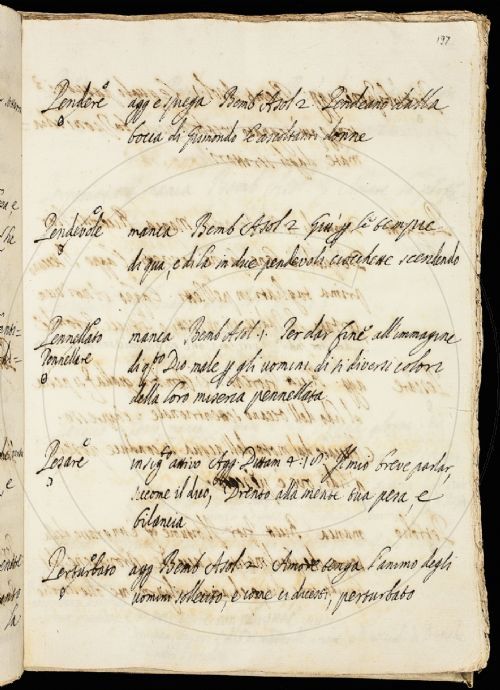 197
Pendere agg e spiega Bemb Asol 2 Pendeano dalla
bocca di Gismondo l'ascoltanti donne
Pendevole manca Bemb Asol 2 Giù le tempie
di qua, e di là in due pendevoli ciocchette scendendo
Pennellato manca Bemb Asol: 1: Per dar fine all'immagine
Pennellare di qto Dio male gli uomini di sì diversi colori
della loro miseria pennellata
Pesare in sigto attivo Agg Dittam 4: Il mio breve parlar,
siccome il dico, Drento alla mente tua pesa, e
bilancia
Perturbato agg Bemb Asol: 2: Amore tenga l'animo degli
uomini sollecito, e come ci dicesti, perturbato